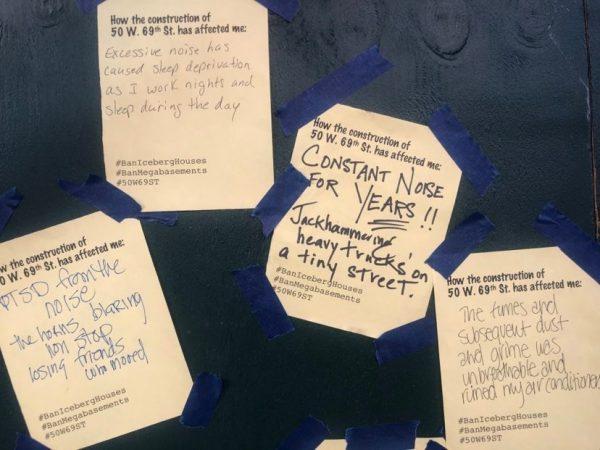 How the construction of
50 W. 69th St. has affected me:
Excessive noise has
caused sleep deprivation
as I work nights and
sleep during the day
#BanIcebergHouses
#BanMegabasements
#50W69ST
How the construction of
50 W. 69th St. has affected me:
CONSTANT NOISE
FOR YEARS !!
Jackhammering
heavy trucks on
a tiny street.
#BanIcebergHouses
#BanMegabasements
#50W69ST
w the construction of
50 W. 69th St. has affected me:
PTSD from the
noise
the horns blaring
non stop
losing friends
who moved
#BanIcebergHouses
#BanMegabasements
#50W69ST
How the construction of
50 W. 69th St. has affected me:
The fumes and
subsequent dust
and grime was
unbreathable and
ruined my air conditioners
#BanIcebergHouses
#BanMegabasements
#50W69ST